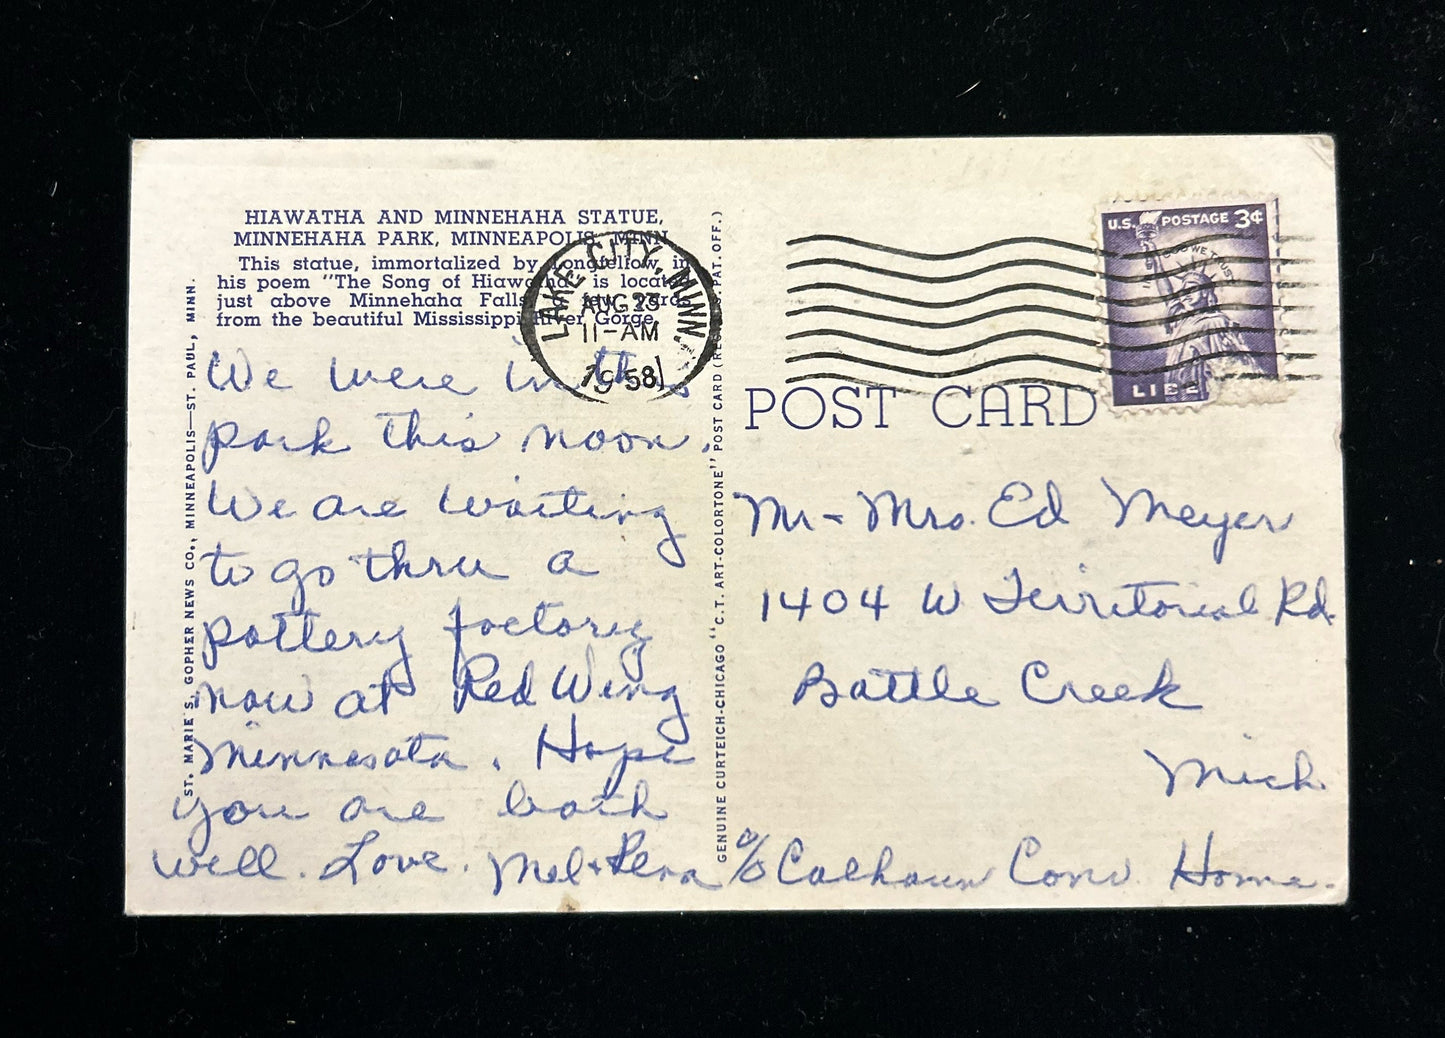 HIAWATHA AND MINNEHAHA STATUE,
MINNEHAHA PARK, MINNEAPOLIS, MINN.
This statue, immortalized by Longfellow in
his poem "The Song of Hiawatha" is located
just above Minnehaha Falls, a few yards
from the beautiful Mississippi River Gorge.
ST. MARIE'S, GOPHER NEWS CO., MINNEAPOLIS—ST. PAUL, MINN.
We were in this
park this noon.
We are waiting
to go thru a
pottery factory
now at Red Wing
Minnesota. Hope
you are both
well. Love. Mel +
GENUINE CURTEICH-CHICAGO "C.T. ART-COLORTONE" POST CARD (REG. U.S. PAT. OFF.)
LAKE CITY, MINN.
AUG 23
11-AM
1958
U.S. POSTAGE 3¢
IN GOD WE TRUST
POST CARD
Mr + Mrs. Ed Meyer
1404 W Territorial Rd.
Battle Creek
Mich
c/o Calhoun Conv. Home.